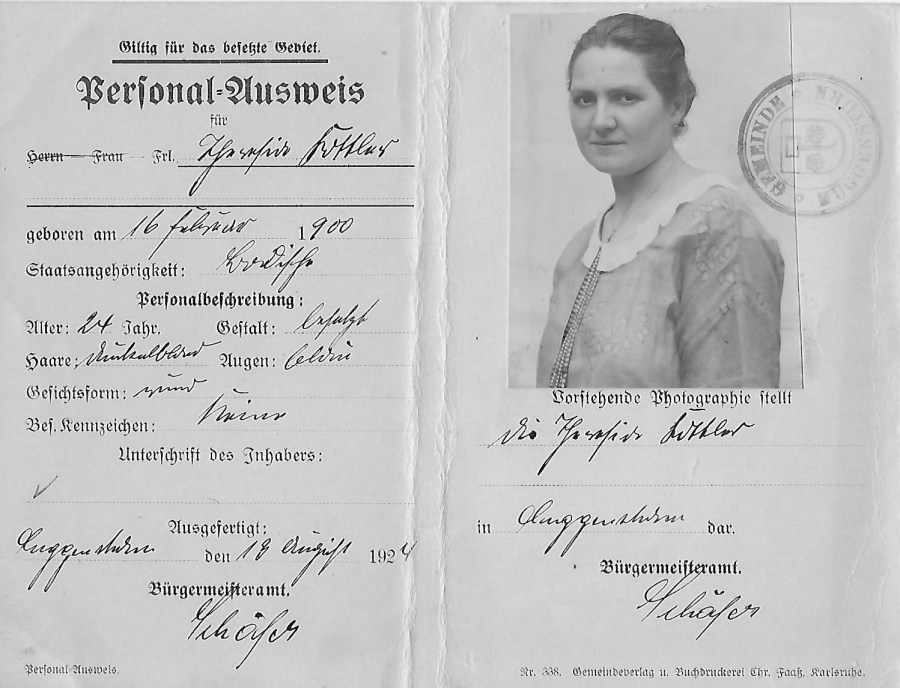 Giltig für das besetzte Gebiet.
Personal-Ausweis
für
Herrn – Frau – Frl. Theresia Kottler
geboren am 16 Februar 1900
Staatsangehörigkeit: Badische
Personalbeschreibung:
Alter: 24 Jahr. Gestalt: besetzt
Haare: dunkelblond Augen: blau
Gesichtsform: rund
Bes. Kennzeichen: Keine
Unterschrift des Inhabers:
Ausgefertigt:
Muggensturm den 18 August 1924
Bürgermeisteramt.
Schäfer
Personal-Ausweis.
GEMEINDE
Vorstehende Photographie stellt
die Theresia Kottler
in Muggensturm dar.
Bürgermeisteramt.
Schäfer
Nr. 338. Gemeindeverlag u. Buchdruckerei Chr. Faaß, Karlsruhe.